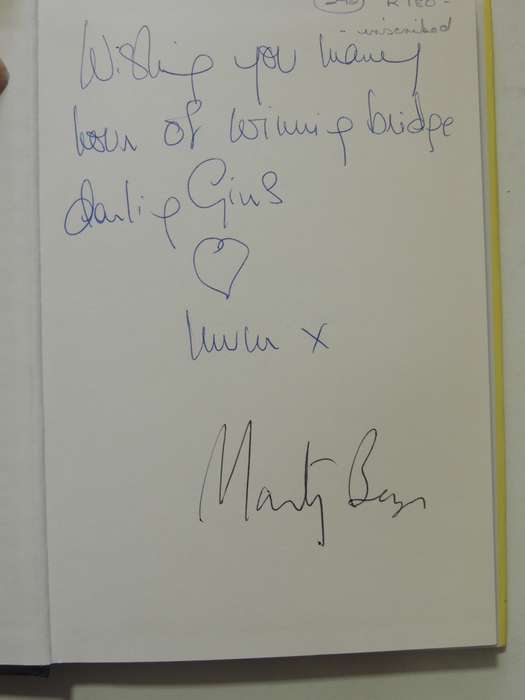 R180 -
- inscribed
Wishing you many
hours of winning bridge
darling Gins
x
Marty